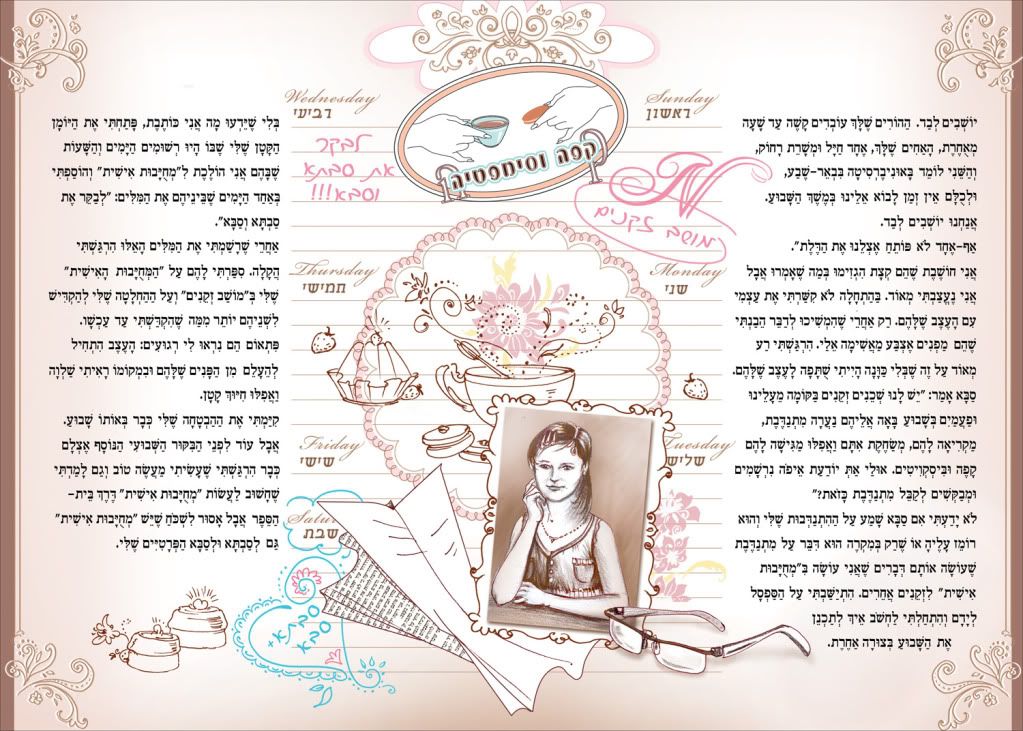 יוֹשְׁבִים לְבַד. הַהוֹרִים שֶׁלָּךְ עוֹבְדִים קָשֶׁה עַד שָׁעָה
מְאֻחֶרֶת, הָאַחִים שֶׁלָּךְ, אֶחָד חַיָּל וּמְשָׁרֵת רָחוֹק,
וְהַשֵּׁנִי לוֹמֵד בָּאוּנִיבֶרְסִיטָה בִּבְאֵר-שֶׁבַע,
וּלְכֻלָּם אֵין זְמַן לָבוֹא אֵלֵינוּ בְּמֶשֶׁךְ הַשָּׁבוּעַ.
אֲנַחְנוּ יוֹשְׁבִים לְבַד.
אַף-אֶחָד לֹא פּוֹתֵחַ אֶצְלֵנוּ אֶת הַדֶּלֶת".
אֲנִי חוֹשֶׁבֶת שֶׁהֵם קְצָת הִגְזִימוּ בְּמָה שֶׁאָמְרוּ אֲבָל
אֲנִי נֶעֱצַבְתִּי מְאוֹד. בַּהַתְחָלָה לֹא קִשַּׁרְתִּי אֶת עַצְמִי
עִם הָעֶצֶב שֶׁלָּהֶם. רַק אַחֲרֵי שֶׁהִמְשִׁיכוּ לְדַבֵּר הֵבַנְתִּי
שֶׁהֵם מַפְנִים אֶצְבַּע מַאֲשִׁימָה אֵלַי. הִרְגַּשְׁתִּי רַע
מְאוֹד עַל זֶה שֶׁבְּלִי כַּוָּנָה הָיִיתִי שֻׁתָּפָה לָעֶצֶב שֶׁלָּהֶם.
סַבָּא אָמַר: "יֵשׁ לָנוּ שְׁכֵנִים זְקֵנִים בַּקּוֹמָה מֵעָלֵינוּ
וּפַעֲמַיִם בְּשָׁבוּעַ בָּאָה אֲלֵיהֶם נַעֲרָה מִתְנַדֶּבֶת,
מַקְרִיאָה לָהֶם, מְשַׂחֶקֶת אִתָּם וַאֲפִלּוּ מַגִּישָׁה לָהֶם
קָפֶה וּבִיסְקְוִיטִים. אוּלַי אַתְּ יוֹדַעַת אֵיפֹה נִרְשָׁמִים
וּמְבַקְּשִׁים לְקַבֵּל מִתְנַדֶּבֶת כָּזֹאת?"
לֹא יָדַעְתִּי אִם סַבָּא שָׁמַע עַל הַהִתְנַדְּבוּת שֶׁלִּי וְהוּא
רוֹמֵז עָלֶיהָ אוֹ שֶׁרַק בְּמִקְרֶה הוּא דִּבֵּר עַל מִתְנַדֶּבֶת
שֶׁעוֹשָׂה אוֹתָם דְּבָרִים שֶׁאֲנִי עוֹשָׂה בְּ"מְחֻיָּבוּת
אִישִׁית" לִזְקֵנִים אֲחֵרִים. הִתְיַשַּׁבְתִּי עַל הַסַּפְסָל
לְיָדָם וְהִתְחַלְתִּי לַחְשֹׁב אֵיךְ לְתַכְנֵן
אֶת הַשָּׁבוּעַ בְּצוּרָה אַחֶרֶת.
Sunday
ראשון
מושב זקנים
Monday
שני
Tuesday
שלישי
קפה וסיחפטיה
Wednesday
רביעי
לבקר
את סבתא
וסבא!!!
Thursday
חמישי
Friday
שישי
שבת
סבתא+
סבא
בְּלִי שֶׁיֵּדְעוּ מָה אֲנִי כּוֹתֶבֶת, פָּתַחְתִּי אֶת הַיּוֹמָן
הַקָּטָן שֶׁלִּי שֶׁבּוֹ הָיוּ רְשׁוּמִים הַיָּמִים וְהַשָּׁעוֹת
שֶׁבָּהֶם אֲנִי הוֹלֶכֶת לִ"מְחֻיָּבוּת אִישִׁית" וְהוֹסַפְתִּי
בְּאַחַד הַיָּמִים שֶׁבֵּינֵיהֶם אֶת הַמִּלִּים: "לְבַקֵּר אֶת
סַבְתָּא וְסַבָּא".
אַחֲרֵי שֶׁרָשַׁמְתִּי אֶת הַמִּלִּים הָאֵלּוּ הִרְגַּשְׁתִּי
הֲקָלָה. סִפַּרְתִּי לָהֶם עַל "הַמְּחֻיָּבוּת הָאִישִׁית"
שֶׁלִּי בְּ"מוֹשַׁב זְקֵנִים" וְעַל הַהַחְלָטָה שֶׁלִּי לְהַקְדִּישׁ
לִשְׁנֵיהֶם יוֹתֵר מִמַּה שֶּׁהִקְדַּשְׁתִּי עַד עַכְשָׁו.
פִּתְאוֹם הֵם נִרְאוּ לִי רְגוּעִים: הָעֶצֶב הִתְחִיל
לְהֵעָלֵם מִן הַפָּנִים שֶׁלָּהֶם וּבִמְקוֹמוֹ רָאִיתִי שַׁלְוָה
וַאֲפִלּוּ חִיּוּךְ קָטָן.
קִיַּמְתִּי אֶת הַהַבְטָחָה שֶׁלִּי כְּבָר בְּאוֹתוֹ שָׁבוּעַ.
אֲבָל עוֹד לִפְנֵי הַבִּקּוּר הַשְּׁבוּעִי הַנּוֹסָף אֶצְלָם
כְּבָר הִרְגַּשְׁתִּי שֶׁעָשִׂיתִי מַעֲשֶׂה טוֹב וְגַם לָמַדְתִּי
שֶׁחָשׁוּב לַעֲשׂוֹת "מְחֻיָּבוּת אִישִׁית" דֶּרֶךְ בֵּית-
הַסֵּפֶר אֲבָל אָסוּר לִשְׁכֹּחַ שֶׁיֵּשׁ "מְחֻיָּבוּת אִישִׁית"
גַּם לְסַבְתָּא וּלְסַבָּא הַפְּרָטִיִּים שֶׁלִּי.